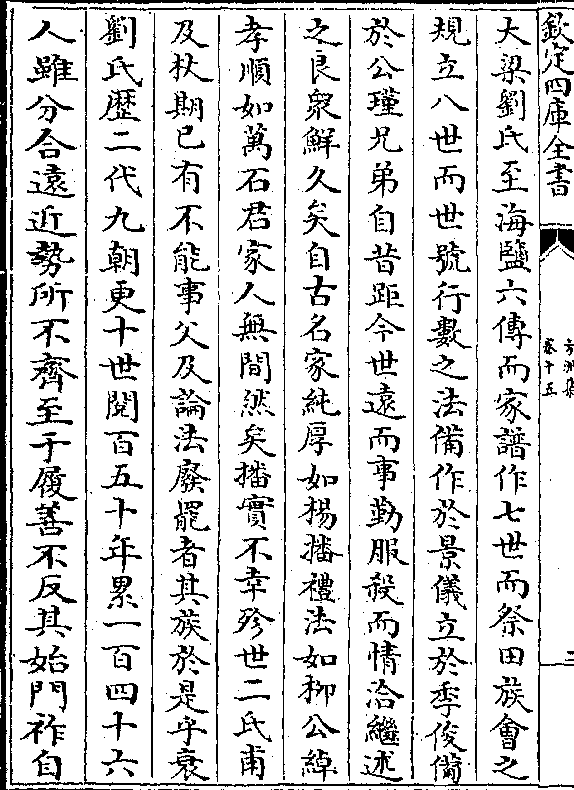 欽定四庫全書
方洲集
卷十五
大梁劉氏至海鹽六傳而家譜作七世而祭田族會之
規立八世而世號行數之法備作於景儀立於季俊備
於公瑾兄弟自昔距今世遠而事勤服殺而情洽繼述
之良衆鮮久矣自古名家純厚如楊播禮法如柳公綽
孝順如萬石君家人無間然矣播實不幸殄世二氏甫
及杖期已有不能事父及論法廢罷者其族於是乎衰
劉氏歴二代九朝更十世閱百五十年累一百四十六
人雖分合遠近勢所不齊至于履善不反其始門祚自